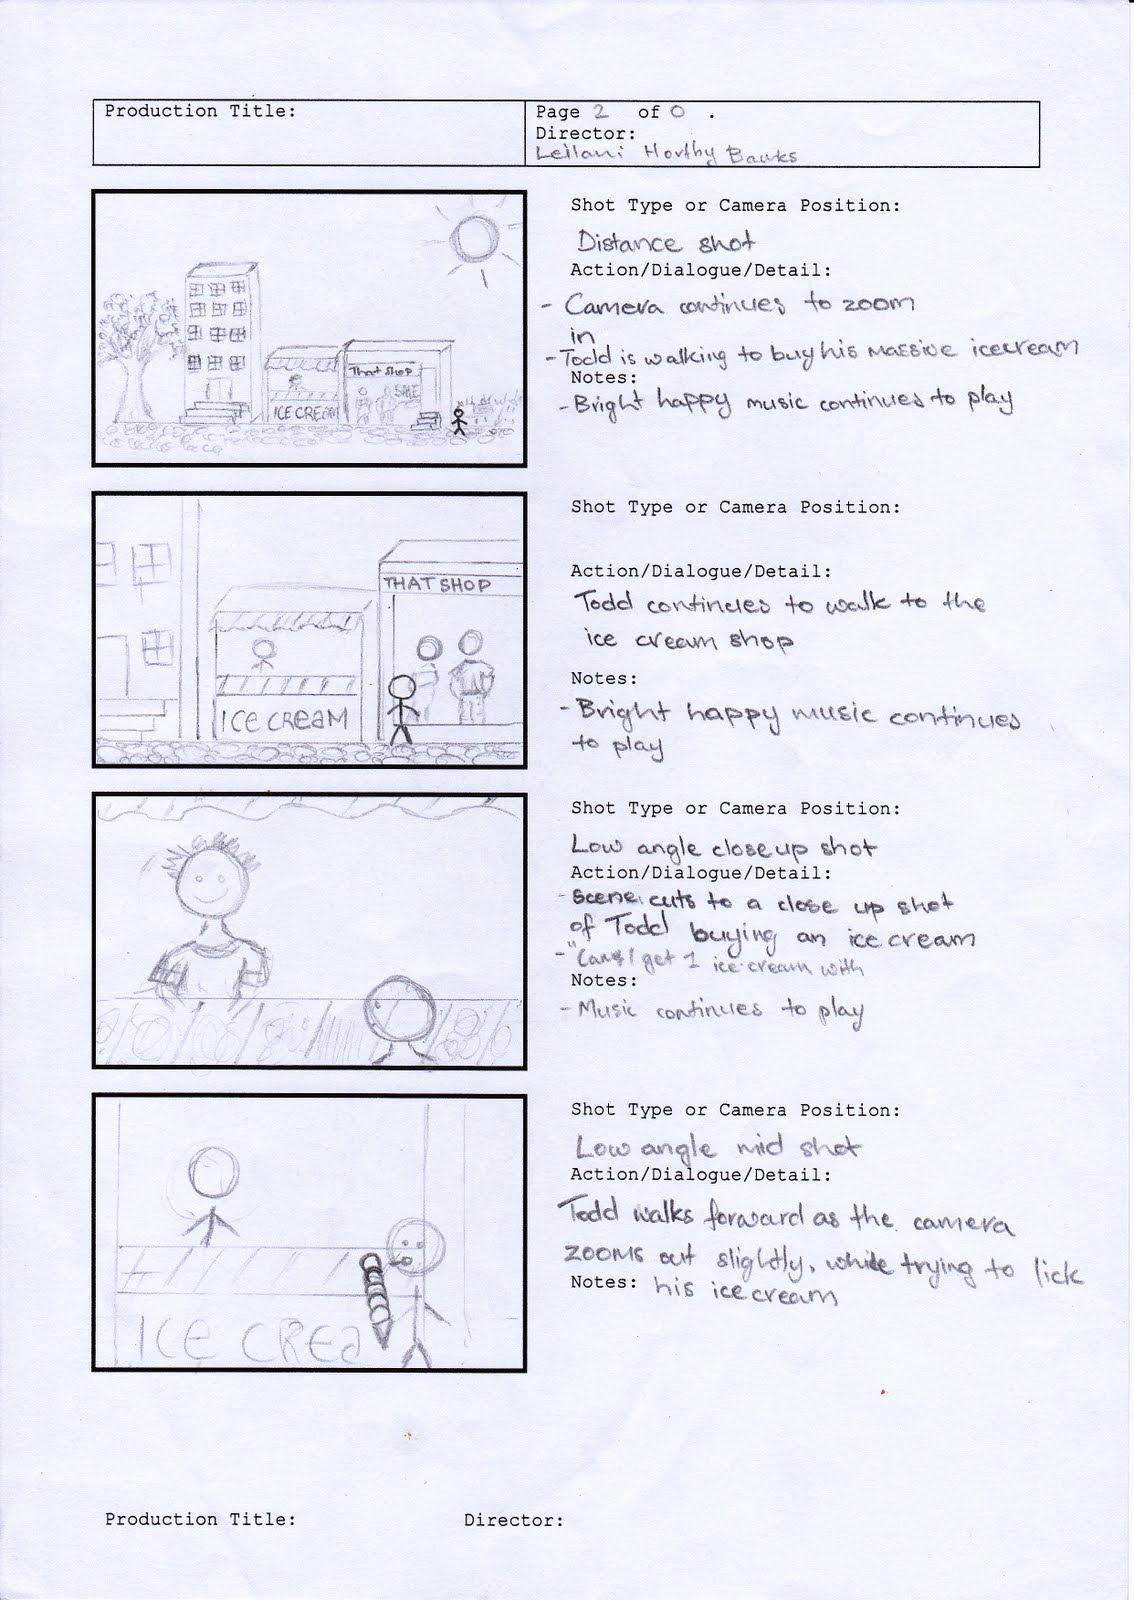 Production Title:
Page 2 of 0 .
Director:
Leilani Horthy Banks
Shot Type or Camera Position:
Distance shot
Action/Dialogue/Detail:
- Camera continues to zoom
in
- Todd is walking to buy his massive icecream
Notes:
- Bright happy music continues to play
That Shop
SALE
ICE CREAM
Shot Type or Camera Position:
Action/Dialogue/Detail:
Todd continues to walk to the
ice cream shop
Notes:
- Bright happy music continues
to play
THAT SHOP
ICE CREAM
Shot Type or Camera Position:
Low angle closeup shot
Action/Dialogue/Detail:
- Scene cuts to a close up shot
of Todd buying an ice cream
- "Can I get 1 ice cream with
Notes:
- Music continues to play
Shot Type or Camera Position:
Low angle mid shot
Action/Dialogue/Detail:
Todd walks forward as the camera
zooms out slightly, while trying to lick
Notes: his ice cream
ICE CREA
Production Title:
Director: